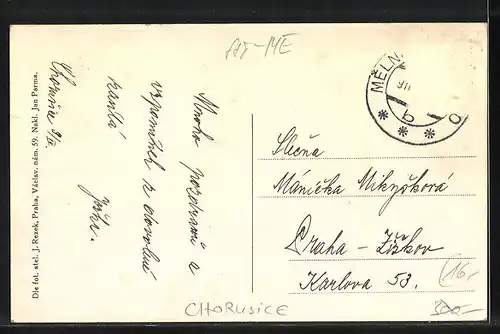 AJ-ME
MĚLN
9/II
b
Mnoho pozdravů a
vzpomínek z dovolené
zasílá
Chorušice 9/II
Dle fot. atel. J. Rezek, Praha, Václav. nám. 59. Nakl. Jan Parma.
Slečna
Mánička Mikyšková
Praha-Žižkov
Karlova 53.
16,-
300,-
CHORUSICE